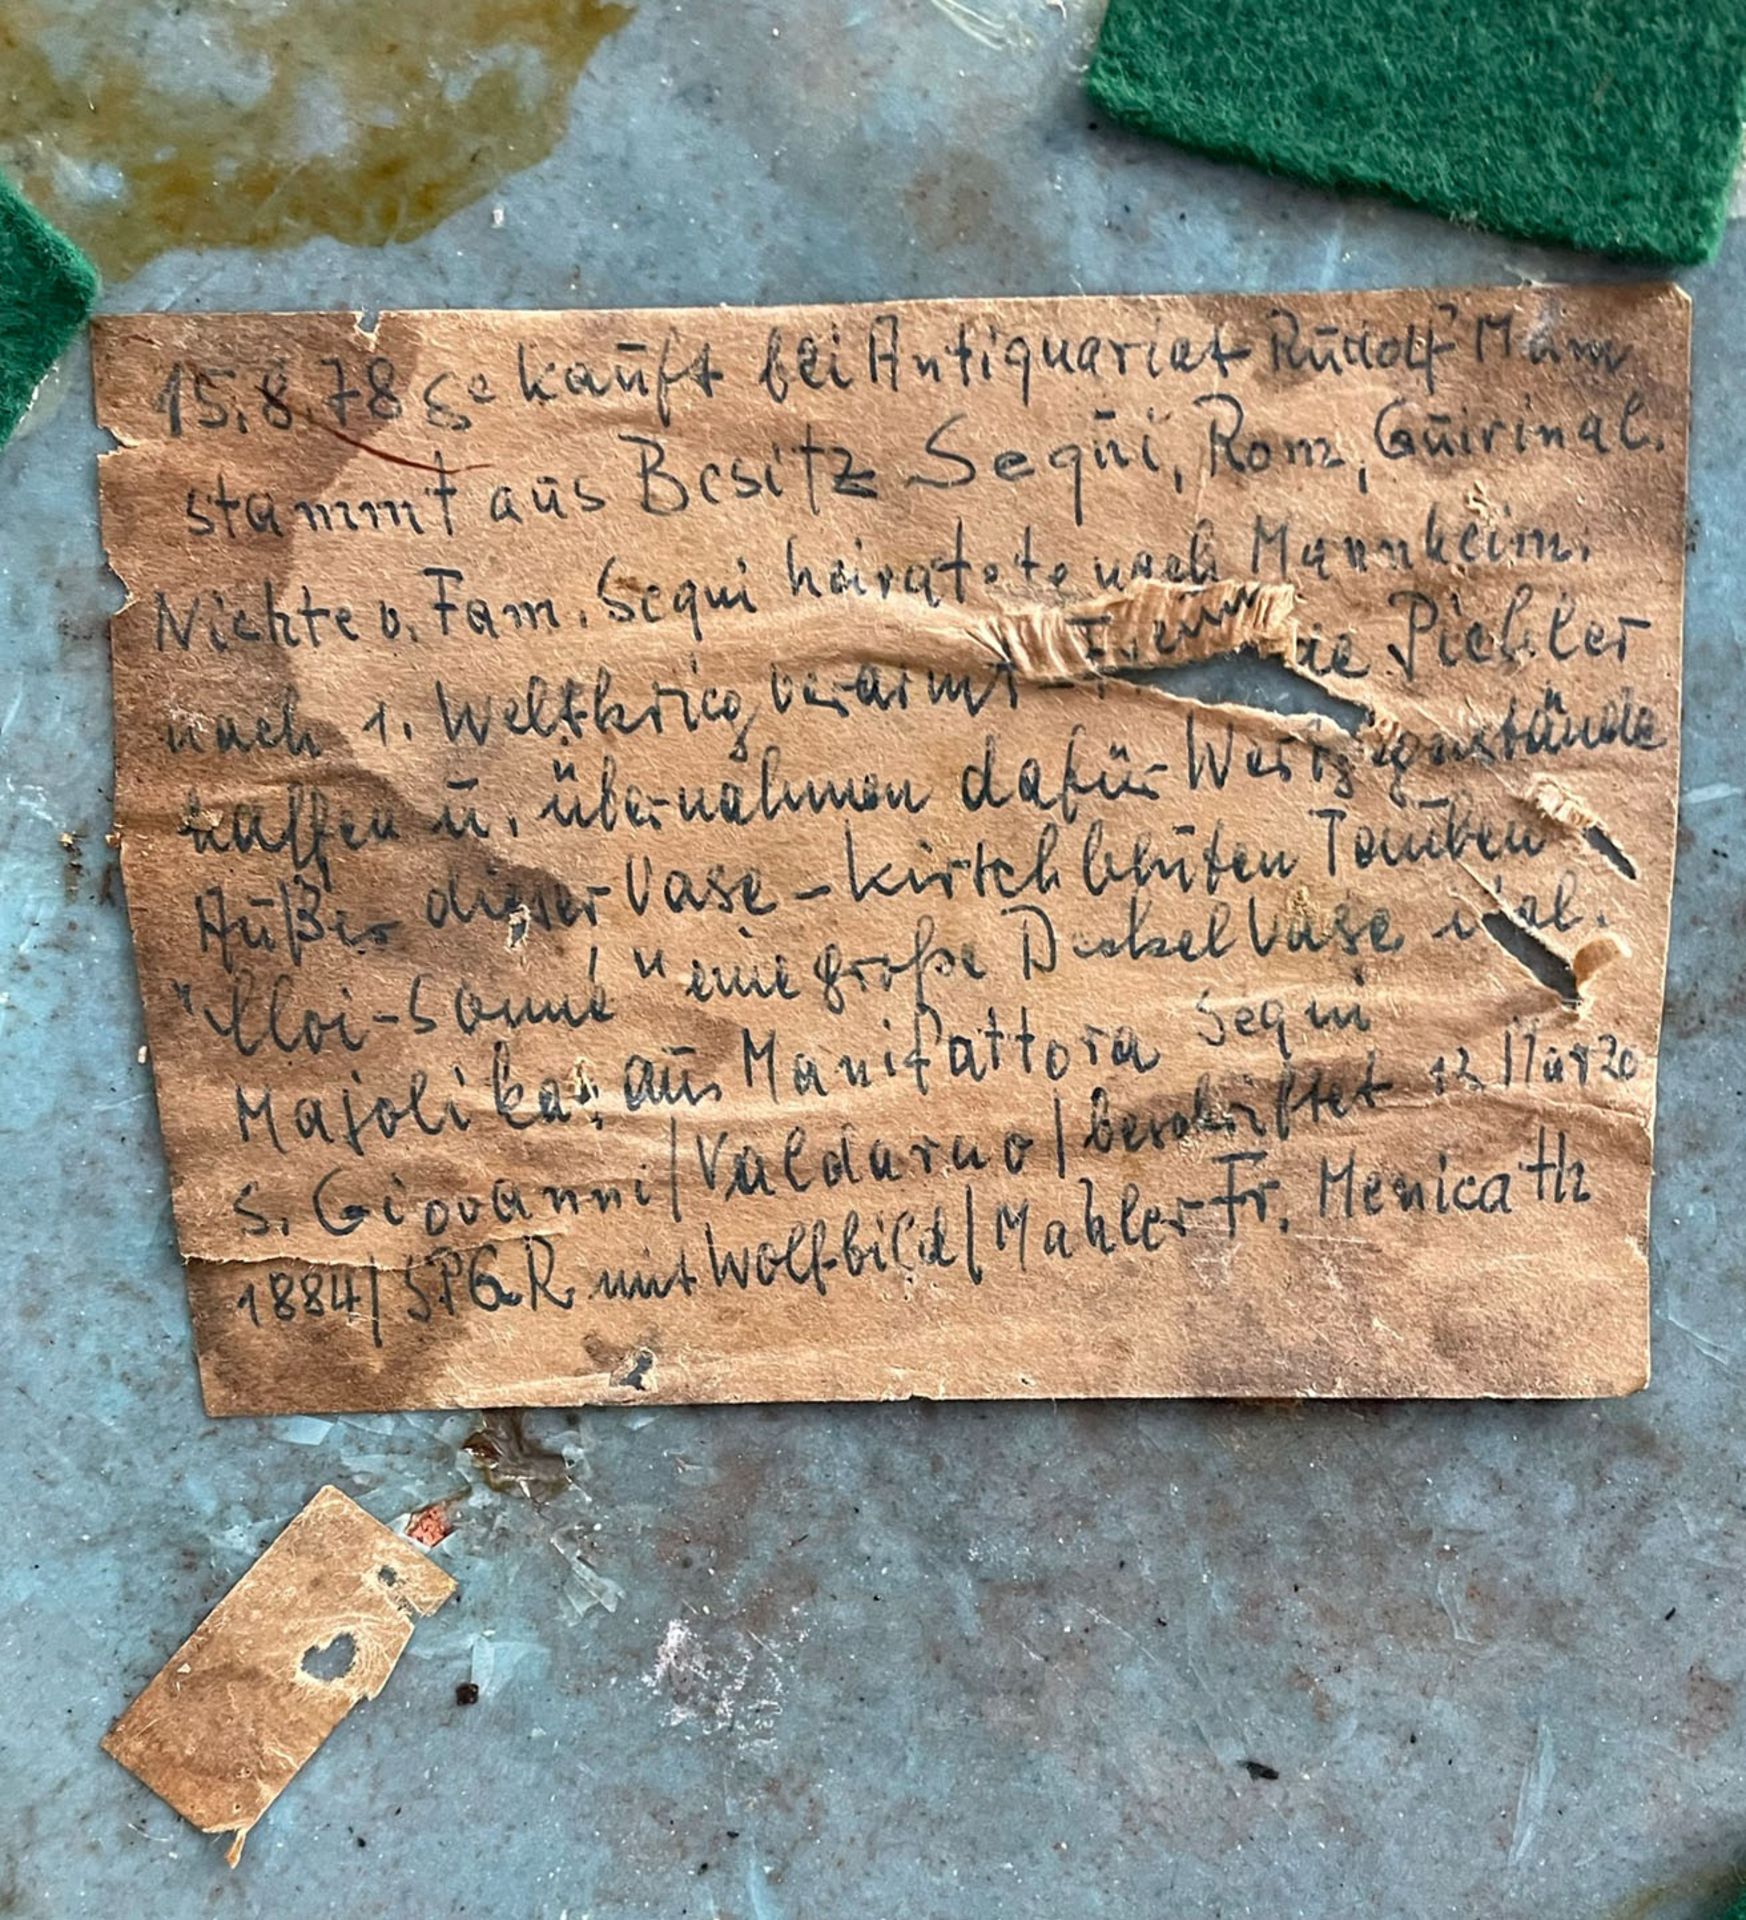 15.8.78 gekauft bei Antiquariat Rudolf Mann
stammt aus Besitz Sequi, Rom, Quirinal.
Nichte v. Fam. Sequi heiratete nach Mannheim.
nach 1. Weltkrieg verarmt - Pichler
halfen u. übernahmen dafür Wertgegenstände
Außer dieser Vase - Kirschblüten Tauben
eine große Deckelvase ital.
Majolika: aus Manifattora Sequi
S. Giovanni/Valdarno/beschriftet 12 Marzo
1884/SPQR mit Wolfbild/Mahler Fr.